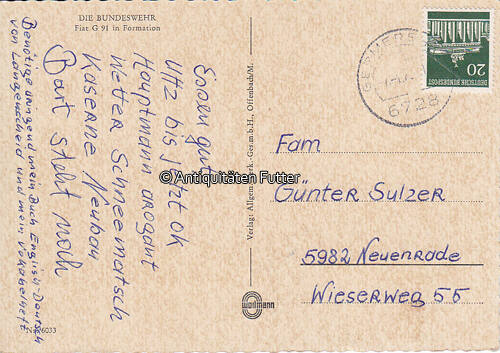 DIE BUNDESWEHR
Fiat G 91 in Formation
Essen gut
Utz bis jetzt ok
Hauptmann arogant
Wetter Schneematsch
Kaserne Neubau
Bart steht noch
Benötige dringend mein Buch English-Deutsch
von Langenscheid und mein Vokabelheft
Nr. 6033
Verlag: Allgem. Werk.-Ges.m.b.H., Offenbach/M.
woldmann
20
DEUTSCHE BUNDESPOST
GERMERS
6728
Fam
Günter Sulzer
5982 Neuenrade
Wieserweg 55
©Antiquitäten Futter